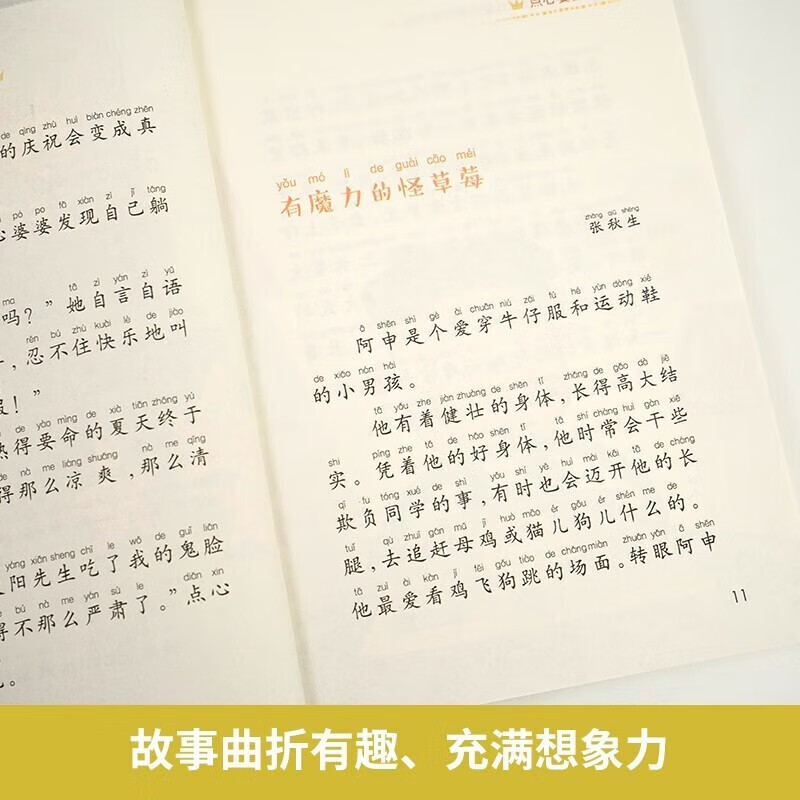 的庆祝会变成真
心婆婆发现自己躺
吗？”她自言自语
，忍不住快乐地叫
！”
热得要命的夏天终于
得那么凉爽，那么清
阳先生吃了我的鬼脸
得不那么严肃了。”点心
yǒu mó lì de guài cǎo méi
有魔力的怪草莓
zhāng qiū shēng
张秋生
ā shēn shì gè ài chuān niú zǎi fú hé yùn dòng xié
阿申是个爱穿牛仔服和运动鞋
de xiǎo nán hái
的小男孩。
tā yǒu zhe jiàn zhuàng de shēn tǐ zhǎng de gāo dà jiē
他有着健壮的身体，长得高大结
shi píng zhe tā de hǎo shēn tǐ tā shí cháng huì gàn xiē
实。凭着他的好身体，他时常会干些
qī fu tóng xué de shì yǒu shí yě huì mài kāi tā de cháng
欺负同学的事，有时也会迈开他的长
tuǐ qù zhuī gǎn mǔ jī huò māo ér gǒu ér shén me de
腿，去追赶母鸡或猫儿狗儿什么的。
tā zuì ài kàn jī fēi gǒu tiào de chǎng miàn zhuǎn yǎn ā shēn
他最爱看鸡飞狗跳的场面。转眼阿申
11
故事曲折有趣、充满想象力